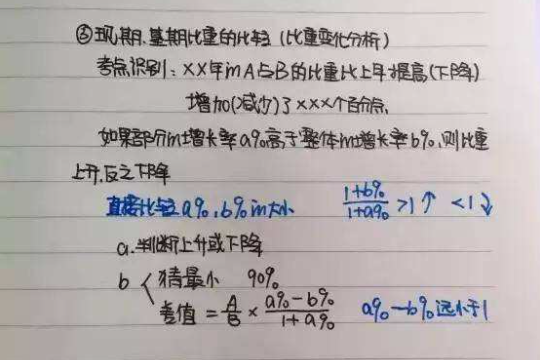 ③现期、基期比重的比较（比重变化分析）
考点识别：××年mA与B的比重比上年提高(下降)
增加(减少)了×××个百分点,
如果部分m增长率a%高于整体m增长率b%,则比重
上升,反之下降
直接比较a%、b%m大小 (1+b%)/(1+a%) >1↑ <1↓
a.判断上升或下降
b 猜最小 90%
差值 = A/B × (a%-b%)/(1+a%) a%-b%远小于1